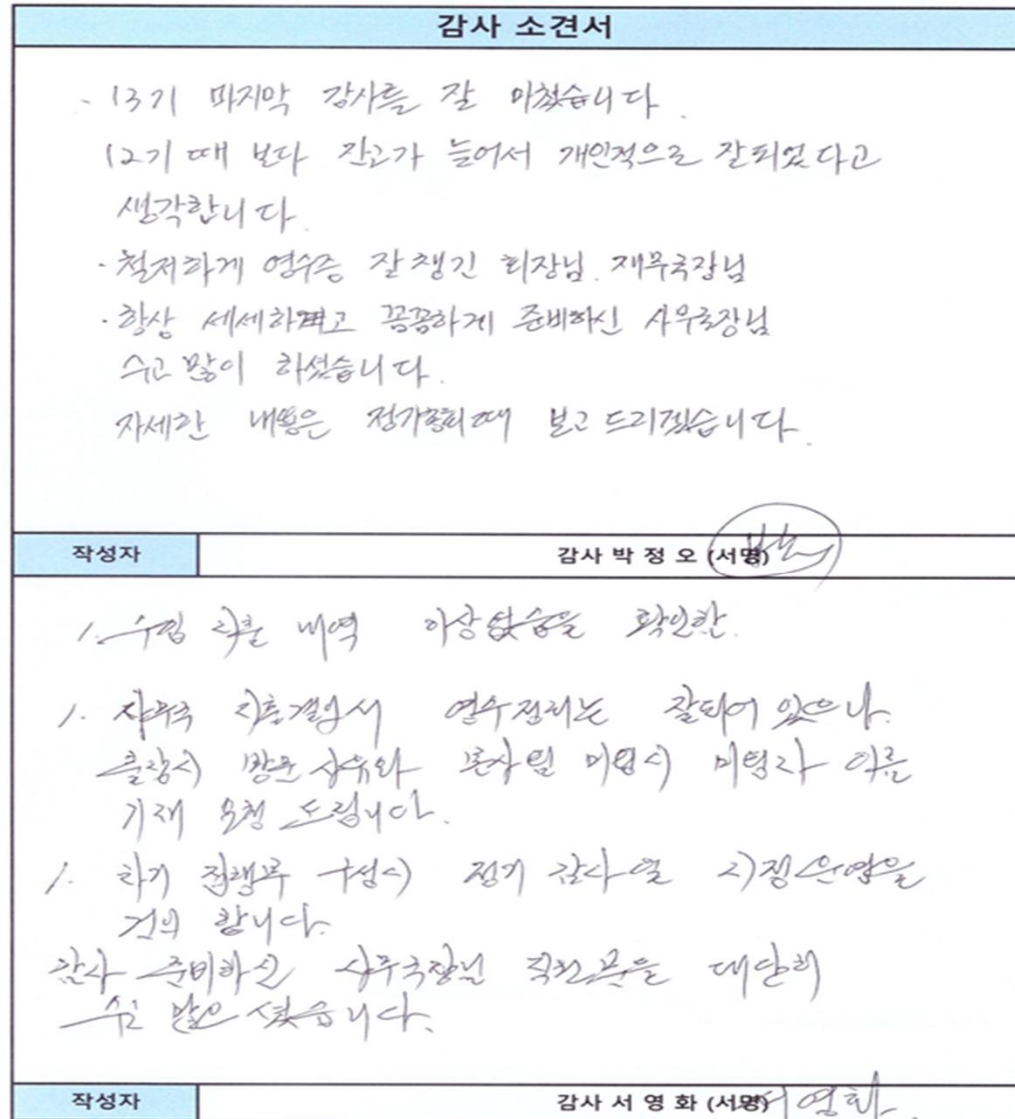 감사 소견서
- 13기 마지막 감사를 잘 마쳤습니다.
12기 때 보다 잔고가 늘어서 개인적으로 잘되었다고
생각합니다.
· 철저하게 영수증 잘 챙긴 회장님. 재무국장님
· 항상 세세하고 꼼꼼하게 준비하신 사무국장님
수고 많이 하셨습니다.
자세한 내용은 정기총회때 보고 드리겠습니다.
작성자 감사 박 정 오 (서명)
1. 수입 지출 내역 이상없음을 확인함.
1. 사무국 지출결의서 영수정리는 잘되어 있으나.
출장시 방문 사유와 미입자 이름
기재 요청 드립니다.
1. 차기 집행부 구성시 정기 감사일 지정운영을
건의 합니다.
감사 준비하신 사무국장님 직원분을 대단히
수고 많으셨습니다.
작성자 감사 서 영 화 (서명) 서영화